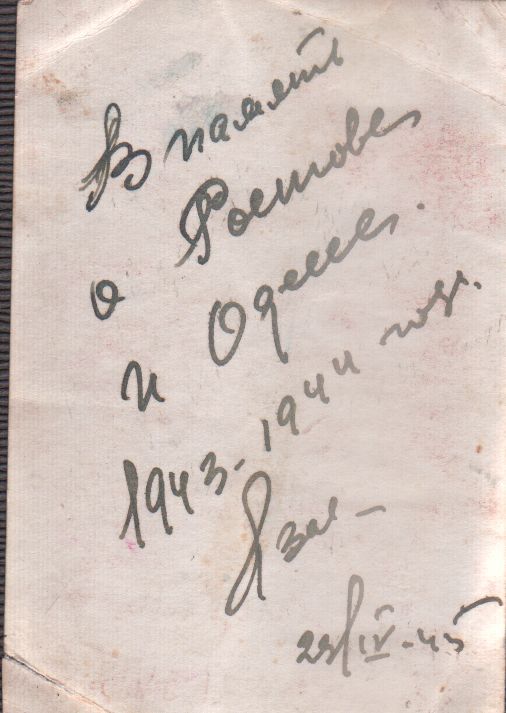 В память
о Ростове
и Одессе.
1943-1944 год.
29/IV-45